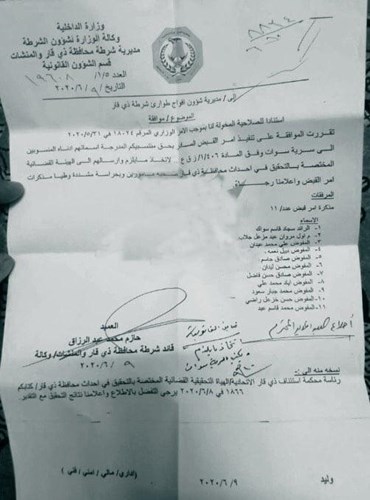 وزارة الداخلية
وكالة الوزارة لشؤون الشرطة
مديرية شرطة محافظة ذي قار والمنشآت
قسم الشؤون القانونية
العدد ١/٥/ ١٩٦٠٨
التاريخ / ٩ /٢٠٢٠/٦
الى / مديرية شؤون افواج طوارئ شرطة ذي قار
الموضوع / موافقة
استنادا للصلاحية المخولة لنا بموجب الامر الوزاري المرقم ١٨٠٢٤ في ٢٠٢٠/٥/٣١
تقررت الموافقة على تنفيذ امر القبض الصادر بحق منتسبيكم المدرجة اسمائهم ادناه المنسوبين
الى سرية سوات وفق المادة ١/٤٠٦/ ق ع لاتخاذ مايلزم وارسالهم الى الهيئة القضائية
المختصة بالتحقيق في احداث محافظة ذي قار وبحراسة مشددة وطيا مذكرات
امر القبض واعلامنا رجاءً
المرفقات
مذكرة امر قبض عدد/ ١١
الاسماء
١- الرائد سجاد قاسم سواك
٢- م اول مروان عبد مزعل جلاب
٣- المفوض علي محمد عبدان
٤- المفوض نبيل نعمه
٥- المفوض صادق جاسم
٦- المفوض محسن لبدان
٧- المفوض صادق حسن فاضل
٨- المفوض اياد محمد علي
٩- المفوض محمد جبار سعود
١٠- المفوض حسن خزعل راضي
١١- المفوض محمد قاسم عبد
العميد
حازم محمد عبد الرزاق
قائد شرطة محافظة ذي قار والمنشآت/ وكالة
٢٠٢٠/٦/٩
نسخه منه الى:-
رئاسة محكمة استئناف ذي قار الاتحادية/الهيأة التحقيقية القضائية المختصة بالتحقيق في احداث محافظة ذي قار/ كتابكم
١٨٦٦ في ٢٠٢٠/٦/٨ يرجى التفضل بالاطلاع واعلامنا نتائج التحقيق مع التقدير.
(اداري/ مالي / امني / فني)
وليد
٢٠٢٠/٦/٩